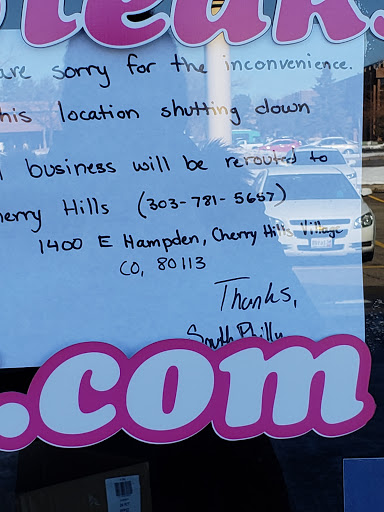 steak.
are sorry for the inconvenience.
his location shutting down
l business will be rerouted to
herry Hills (303-781-5657)
1400 E Hampden, Cherry Hills Village
CO, 80113
Thanks,
South Philly
.com